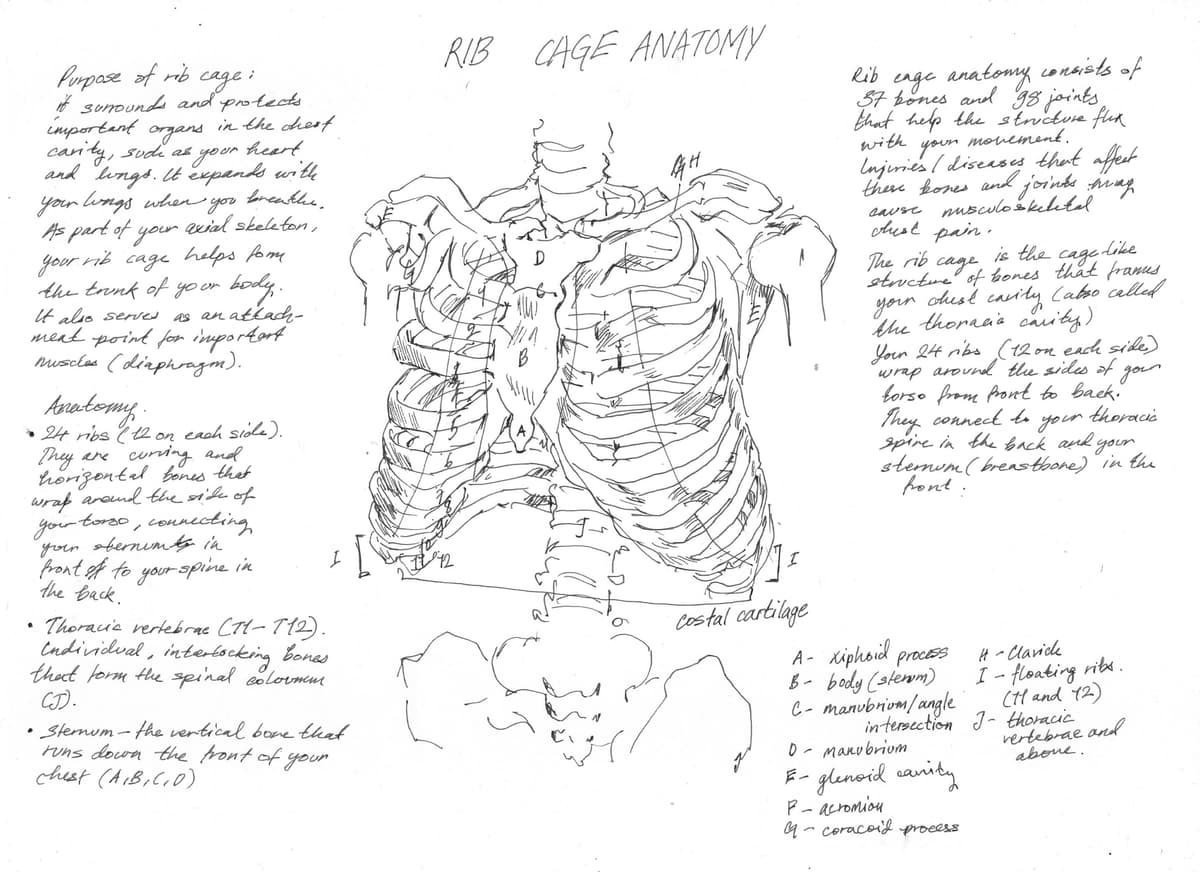 RIB CAGE ANATOMY
Purpose of rib cage:
it surrounds and protects
important organs in the chest
cavity, such as your heart
and lungs. It expands with
your lungs when you breathe.
As part of your axial skeleton,
your rib cage helps form
the trunk of your body.
It also serves as an attach-
ment point for important
muscles (diaphragm).
Anatomy.
• 24 ribs (12 on each side).
They are curving and
horizontal bones that
wrap around the side of
your torso, connecting
your sternum in
front to your spine in
the back.
• Thoracic vertebrae (T1-T12).
Individual, interlocking bones
that form the spinal coloumn
(J).
• Sternum - the vertical bone that
runs down the front of your
chest (A,B,C,D)
H
F
G
D
C
B
A
E
1
J
I
I
11
12
costal cartilage
Rib cage anatomy consists of
37 bones and 98 joints
that help the structure flex
with your movement.
Injuries/diseases that affect
these bones and joints may
cause musculoskeletal
chest pain.
The rib cage is the cage-like
structure of bones that frames
your chest cavity (also called
the thoracic cavity)
Your 24 ribs (12 on each side)
wrap around the sides of your
torso from front to back.
They connect to your thoracic
spine in the back and your
sternum (breastbone) in the
front.
A - xiphoid process
B - body (sternum)
C - manubrium/angle
intersection
D - manubrium
E - glenoid cavity
F - acromion
G - coracoid process
H - Clavicle
I - floating ribs.
(11 and 12)
J - thoracic
vertebrae and
above.